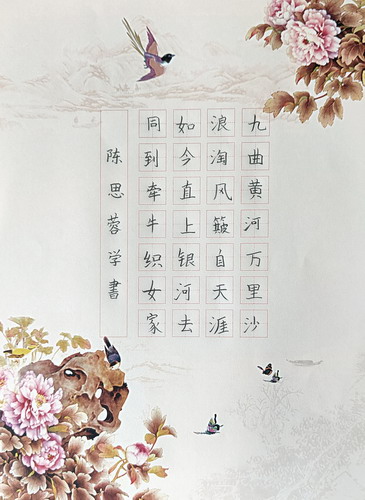 九曲黄河万里沙
浪淘风簸自天涯
如今直上银河去
同到牵牛织女家
陈思蓉学書